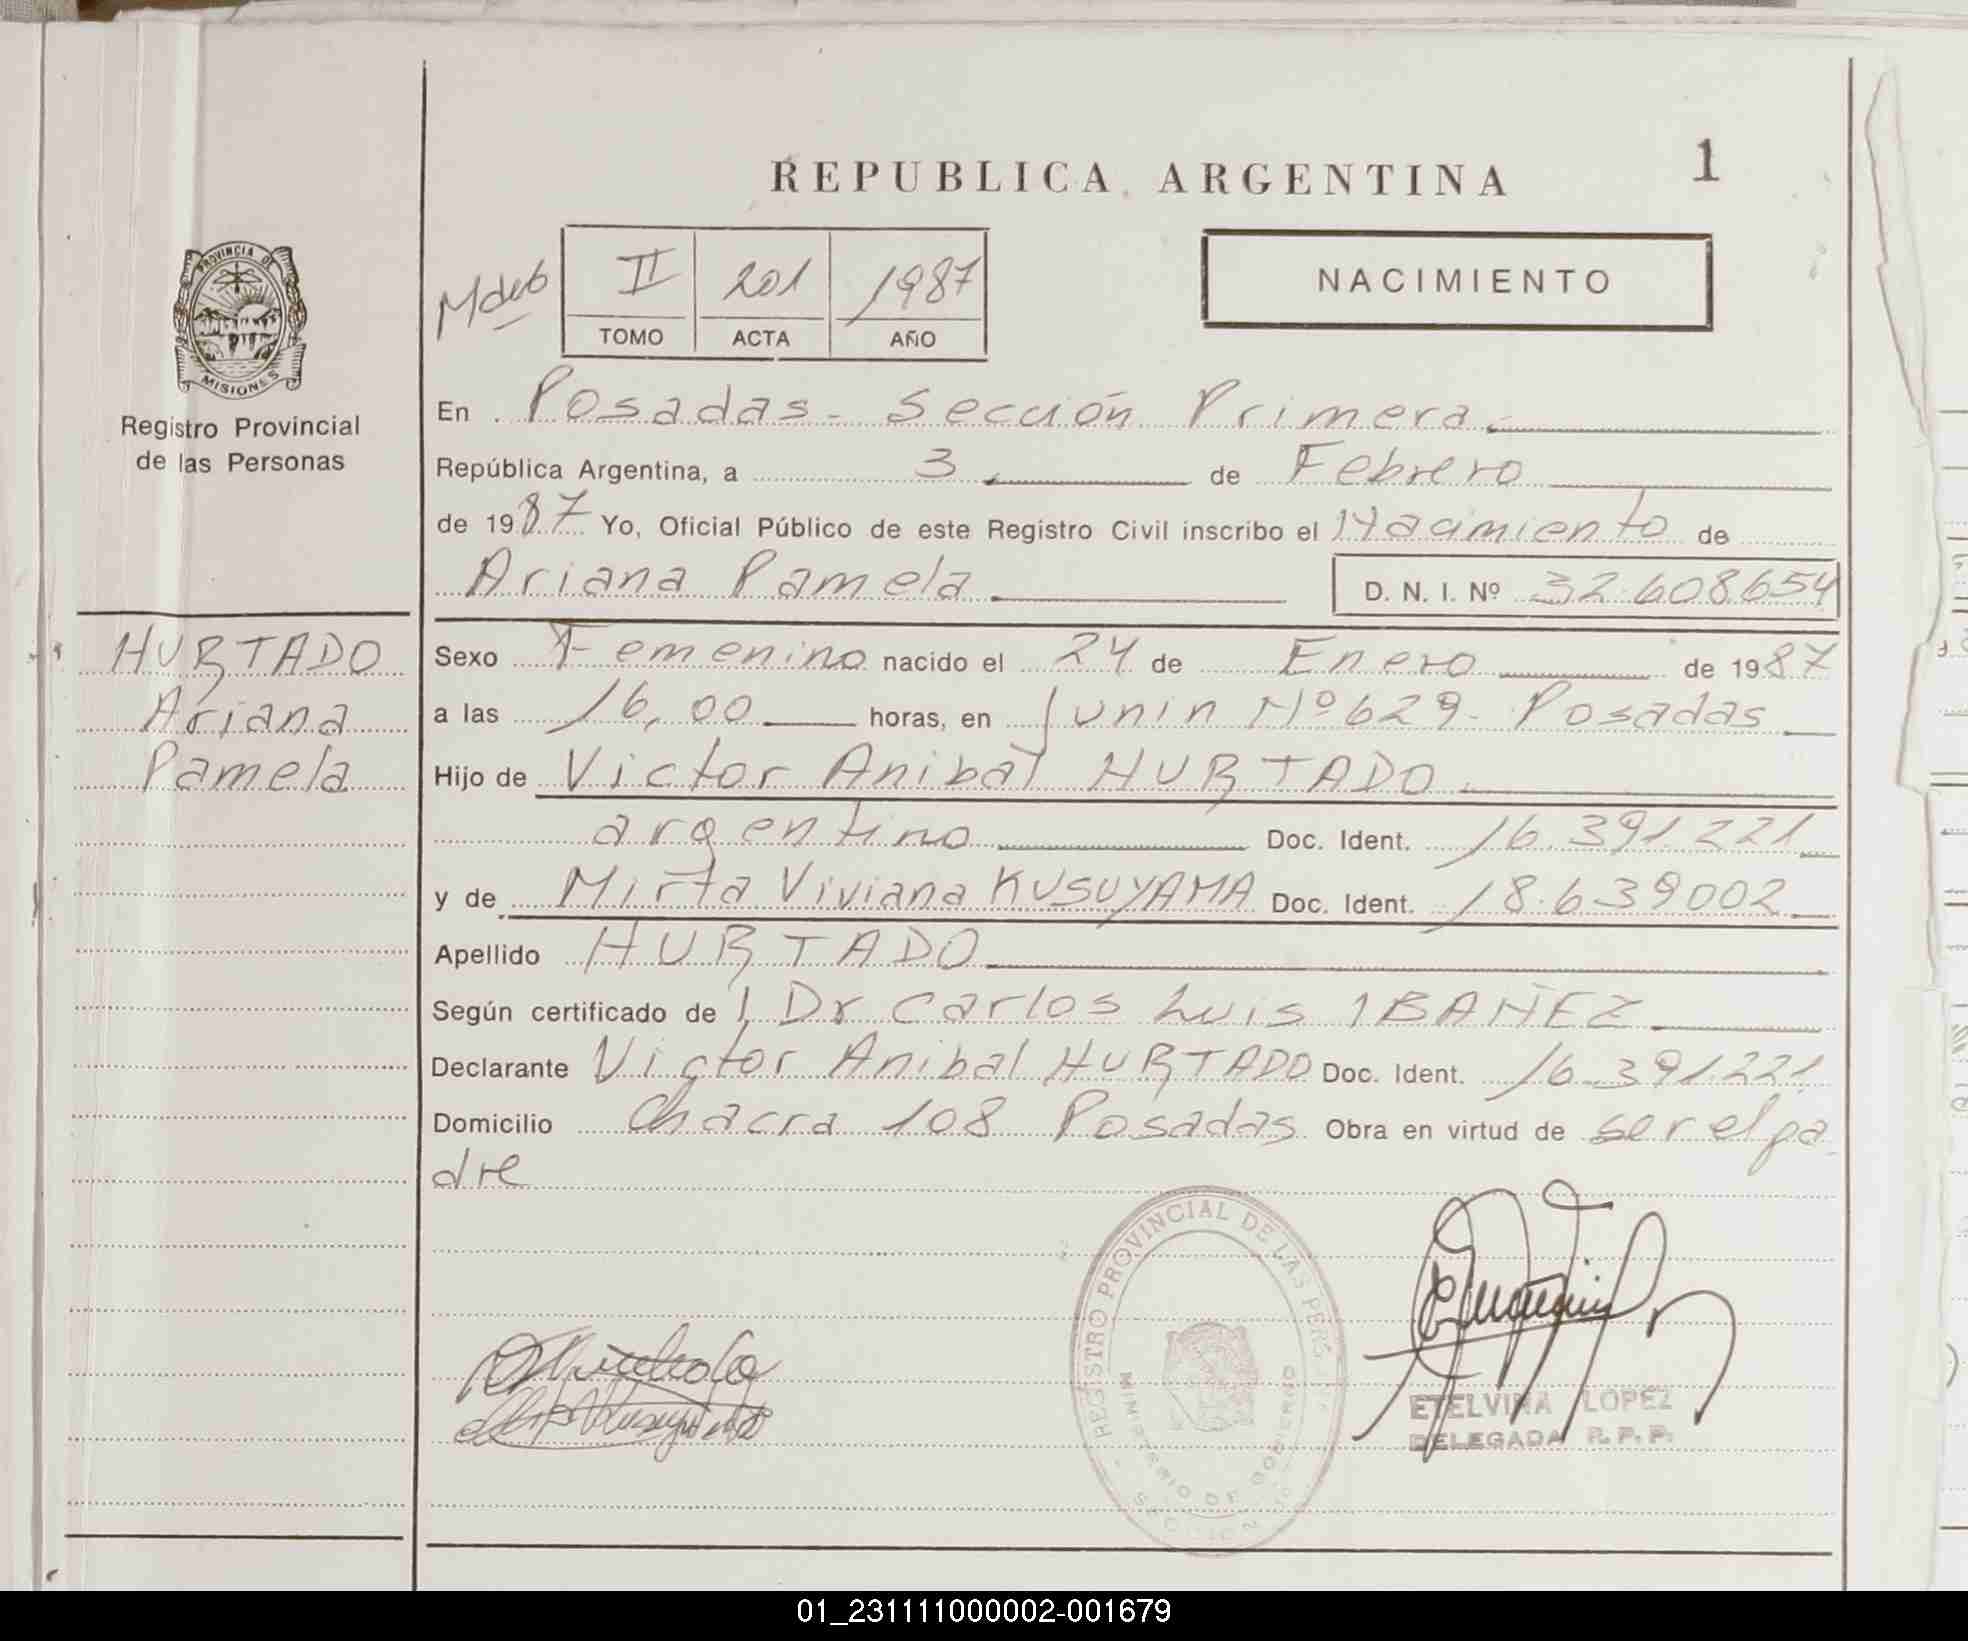 REPUBLICA ARGENTINA
1
PROVINCIA DE
MISIONES
Registro Provincial
de las Personas
II 201 1987
TOMO ACTA AÑO
NACIMIENTO
En Posadas - Sección Primera
República Argentina, a 3 de Febrero
de 1987 Yo, Oficial Público de este Registro Civil inscribo el Nacimiento de
Ariana Pamela D. N. I. Nº 32.608.654
HURTADO
Ariana
Pamela
Sexo Femenino nacido el 24 de Enero de 1987
a las 16,00 horas, en Junin Nº 629 - Posadas
Hijo de Victor Anibal HURTADO
argentino Doc. Ident. 16.391.221
y de Mirta Viviana KUSUYAMA Doc. Ident. 18.639002
Apellido HURTADO
Según certificado de l Dr Carlos Luis IBAÑEZ
Declarante Victor Anibal HURTADO Doc. Ident. 16.391.221
Domicilio Chacra 108 Posadas Obra en virtud de ser el pa
dre
REGISTRO PROVINCIAL DE LAS PERS
MINISTERIO DE GOBIERNO
SECCION
ETELVINA LOPEZ
DELEGADA R. P. P.
01_231111000002-001679